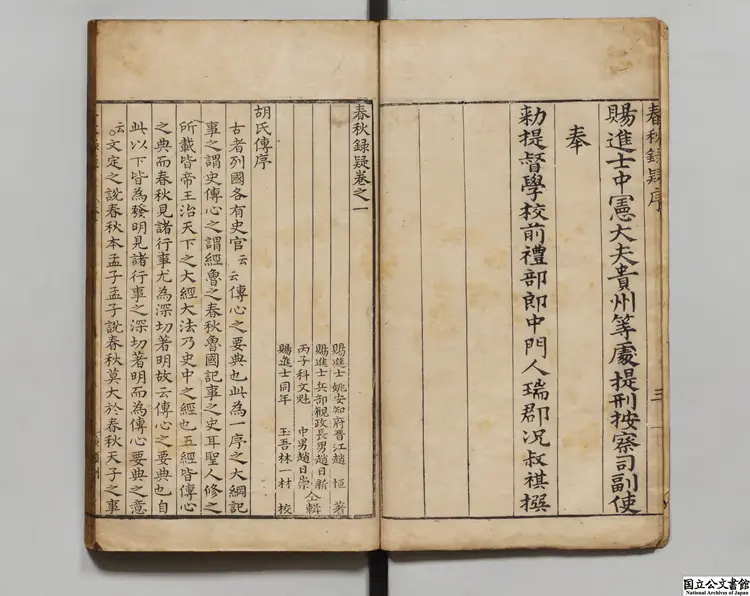 春秋錄疑序
三
賜進士中憲大夫貴州等處提刑按察司副使
奉
勑提督學校前禮部郎中門人瑞郡況叔祺撰
春秋錄疑卷之一
賜進士姚安知府晋江趙恒著
賜進士兵部觀政長男趙日新
丙子科文魁中男趙日崇仝輯
賜進士同年玉吾林一材校
胡氏傳序
古者列國各有史官云云傳心之要典也此為一序之大綱記
事之謂史傳心之謂經魯之春秋魯國記事之史耳聖人修之
所載皆帝王治天下之大經大法乃史中之經也五經皆傳心
之典而春秋見諸行事尤為深切著明故云傳心之要典也自
此以下皆為發明見諸行事之深切著明而為傳心要典之意
云文定之說春秋本孟子孟子說春秋莫大於春秋天子之事
国立公文書館
National Archives of Japan